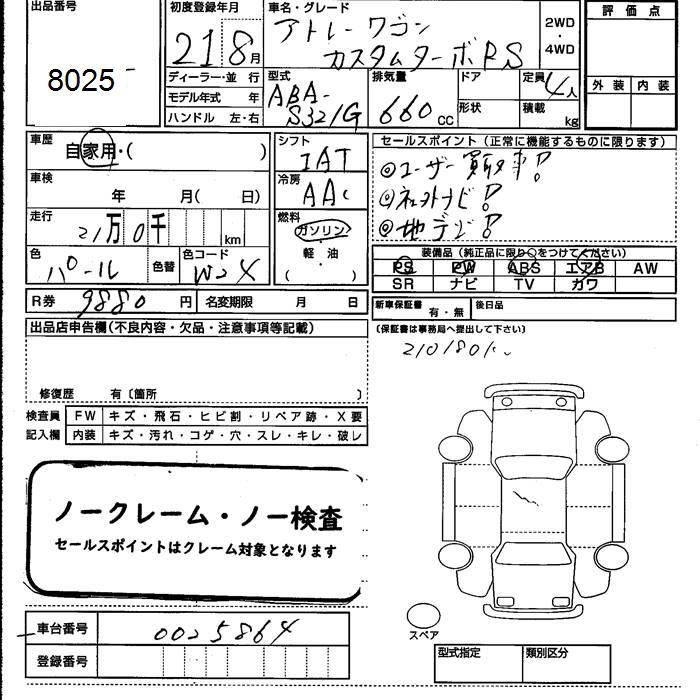 出品番号
8025
初度登録年月
21 8月
車名・グレード
アトレーワゴン
カスタムターボRS
2WD
・
4WD
評価点
外装 内装
ディーラー・並 行
モデル年式 年
ハンドル 左・右
型式
ABA-
S321G
排気量
660 cc
ドア
形状
定員
4人
積載
kg
車歴
自家用・( )
車検
年 月( 日)
走行
21万0千 km
色
パール
色替
色コード
W24
シフト
IAT
冷房
AAC
燃料
ガソリン
・
軽・油
( )
セールスポイント(正常に機能するものに限ります)
◎ユーザー買取車!
◎ネットナビ!
◎地デジ!
装備品(純正品に限り○をつけてください)
PS PW ABS エアB AW
SR ナビ TV カワ
R券 9880 円 名変期限 月 日
新車保証書 有・無 後日品
(保証書は事務局へ提出して下さい)
出品店申告欄(不良内容・欠品・注意事項等記載)
修復歴 有〔箇所 〕
検査員 FW キズ・飛石・ヒビ割・リペア跡・X要
記入欄 内装 キズ・汚れ・コゲ・穴・スレ・キレ・破レ
ノークレーム・ノー検査
セールスポイントはクレーム対象となります
車台番号 0025864
登録番号
スペア
型式指定 類別区分